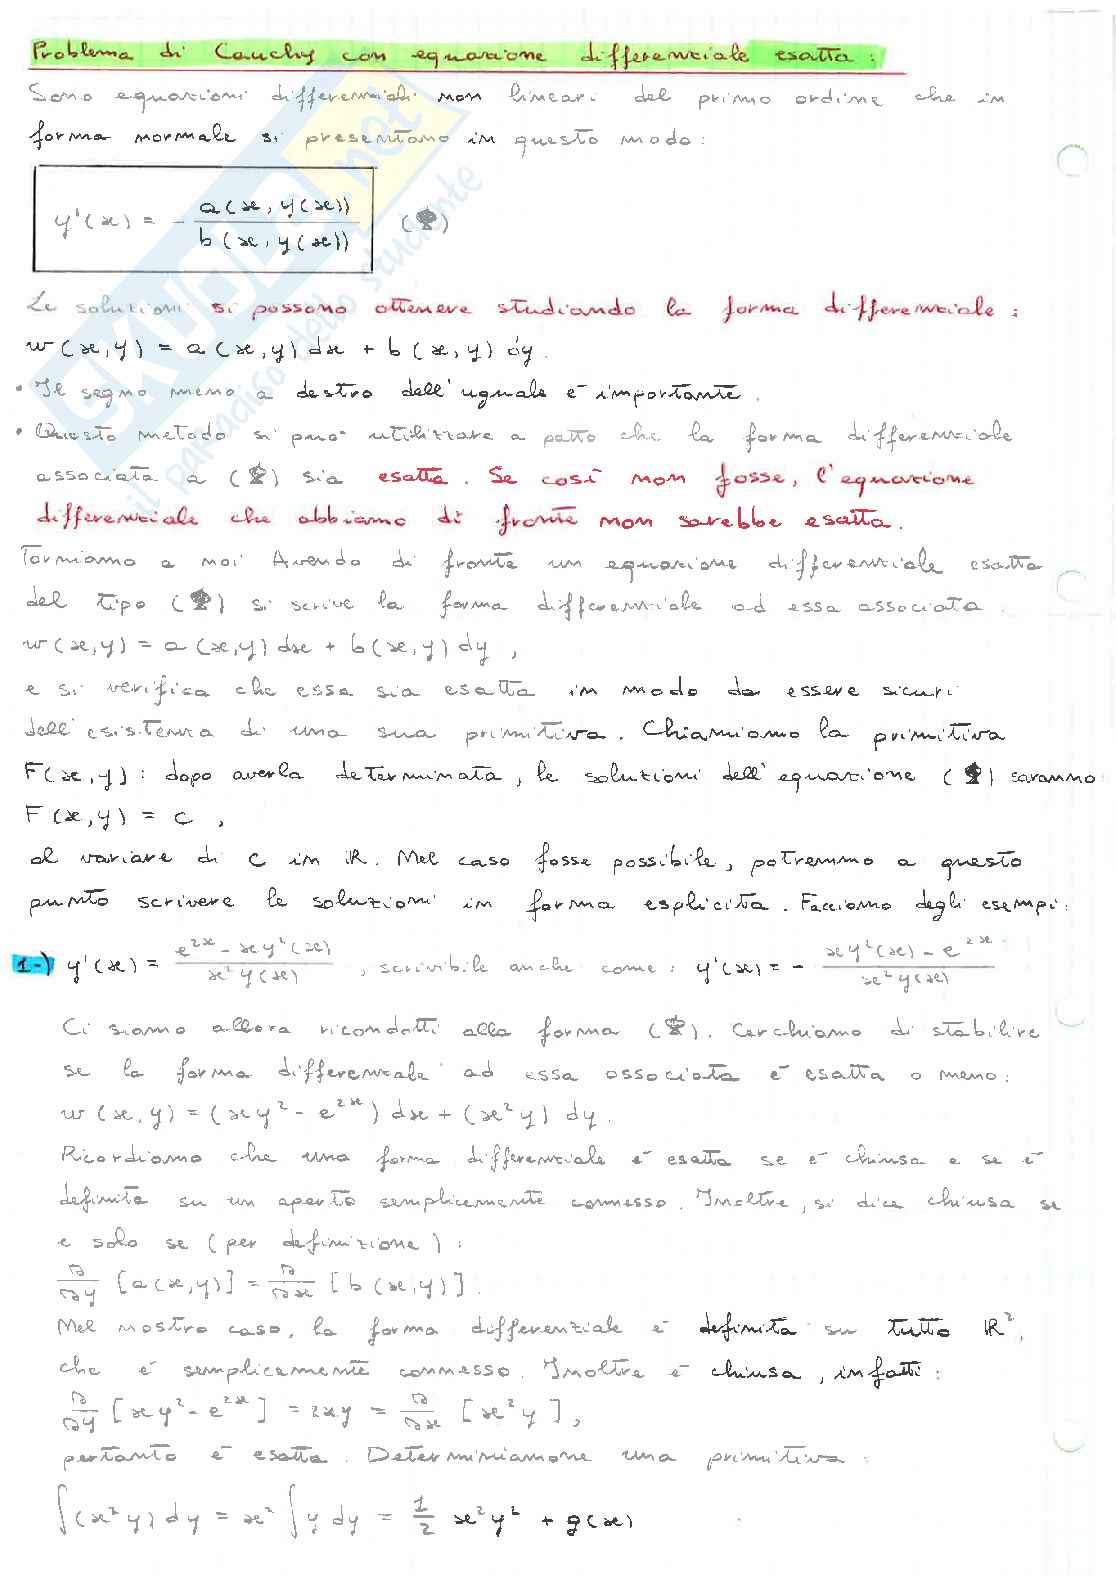 Problema di Cauchy con equazione differenziale esatta:
Sono equazioni differenziali non lineari del primo ordine che in
forma normale si presentano in questo modo:
y'(x) = - a(x, y(x)) / b(x, y(x)) (Φ)
Le soluzioni si possono ottenere studiando la forma differenziale:
w(x,y) = a(x,y) dx + b(x,y) dy.
• Il segno meno a destro dell'uguale è importante.
• Questo metodo si può utilizzare a patto che la forma differenziale
associata a (Φ) sia esatta. Se così non fosse, l'equazione
differenziale che abbiamo di fronte non sarebbe esatta.
Torniamo a noi Avendo di fronte un equazione differenziale esatta
del tipo (Φ) si scrive la forma differenziale ad essa associata.
w(x,y) = a(x,y) dx + b(x,y) dy,
e si verifica che essa sia esatta in modo da essere sicuri
dell'esistenza di una sua primitiva. Chiamiamo la primitiva
F(x,y): dopo averla determinata, le soluzioni dell'equazione (Φ) saranno
F(x,y) = c,
al variare di c in ℝ. Nel caso fosse possibile, potremmo a questo
punto scrivere le soluzioni in forma esplicita. Facciamo degli esempi:
1-) y'(x) = e^2x - xy²(x) / x²y(x), scrivibile anche come: y'(x) = - xy²(x) - e^2x / x²y(x)
Ci siamo allora ricondotti alla forma (Φ). Cerchiamo di stabilire
se la forma differenziale ad essa associata è esatta o meno:
w(x,y) = (xy² - e^2x) dx + (x²y) dy.
Ricordiamo che una forma differenziale è esatta se è chiusa e se è
definita su un aperto semplicemente connesso. Inoltre, si dice chiusa se
e solo se (per definizione):
∂/∂y [a(x,y)] = ∂/∂x [b(x,y)].
Nel nostro caso, la forma differenziale è definita su tutto ℝ²,
che è semplicemente connesso. Inoltre è chiusa, infatti:
∂/∂y [xy² - e^2x] = 2xy = ∂/∂x [x²y],
pertanto è esatta. Determiniamone una primitiva:
∫(x²y) dy = x² ∫y dy = 1/2 x²y² + g(x)
SKUOLA.net
il paradiso dello studente